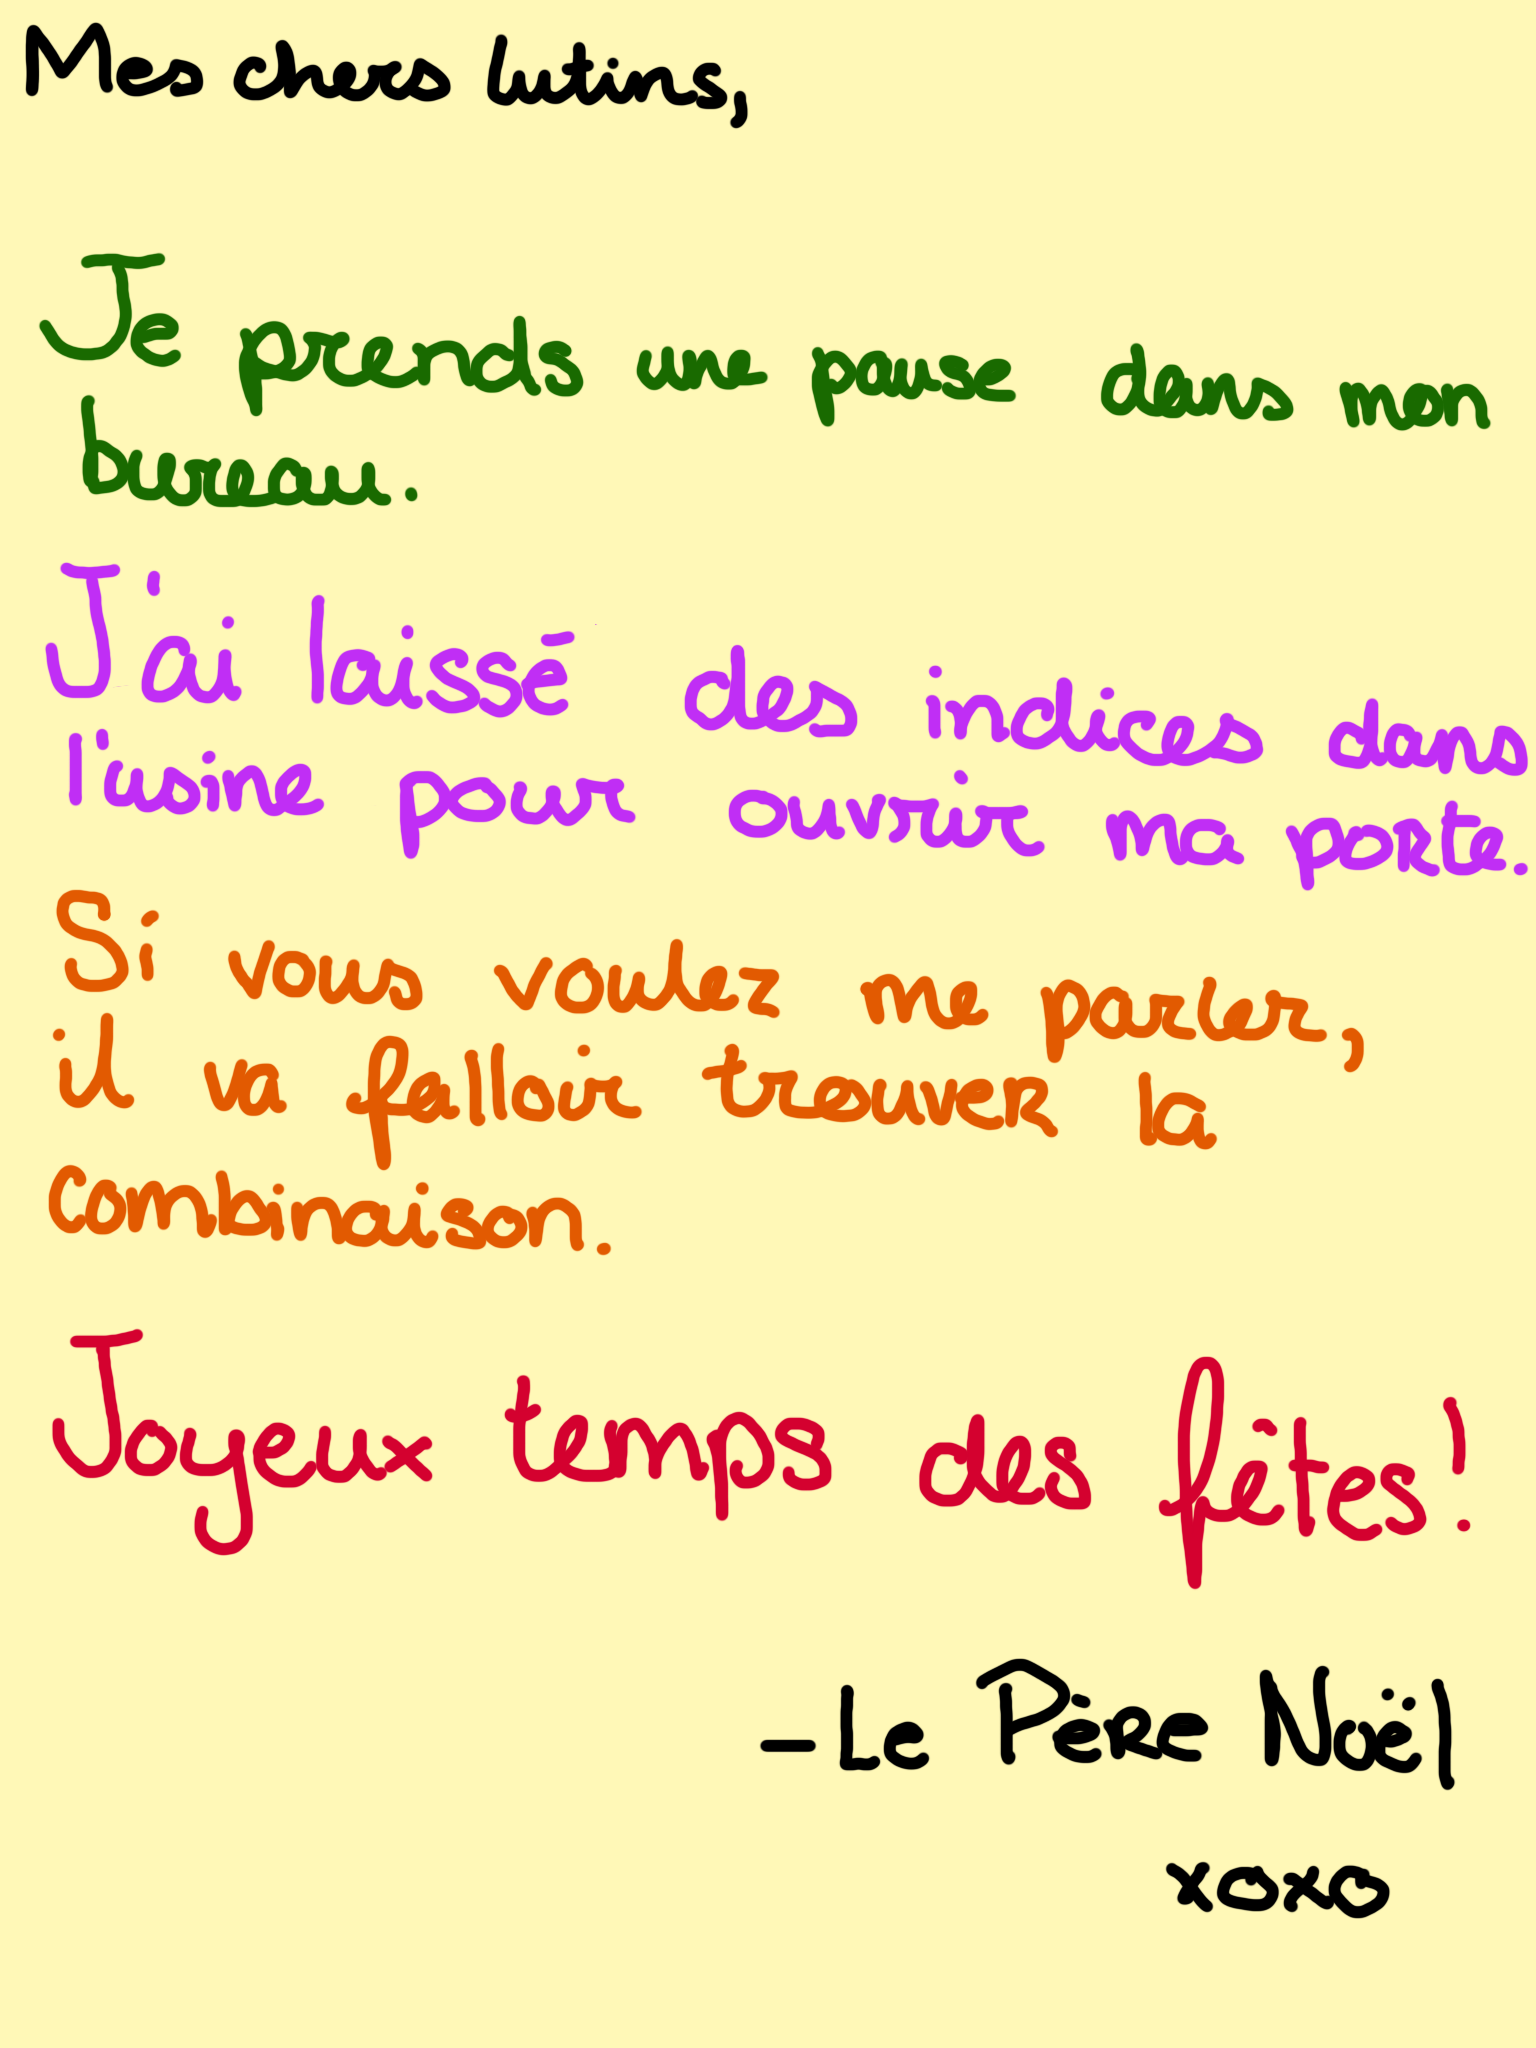 Mes chers lutins,
Je prends une pause dans mon
bureau.
J'ai laissé des indices dans
l'usine pour ouvrir ma porte.
Si vous voulez me parler,
il va falloir trouver la
combinaison.
Joyeux temps des fêtes!
-Le Père Noël
xoxo